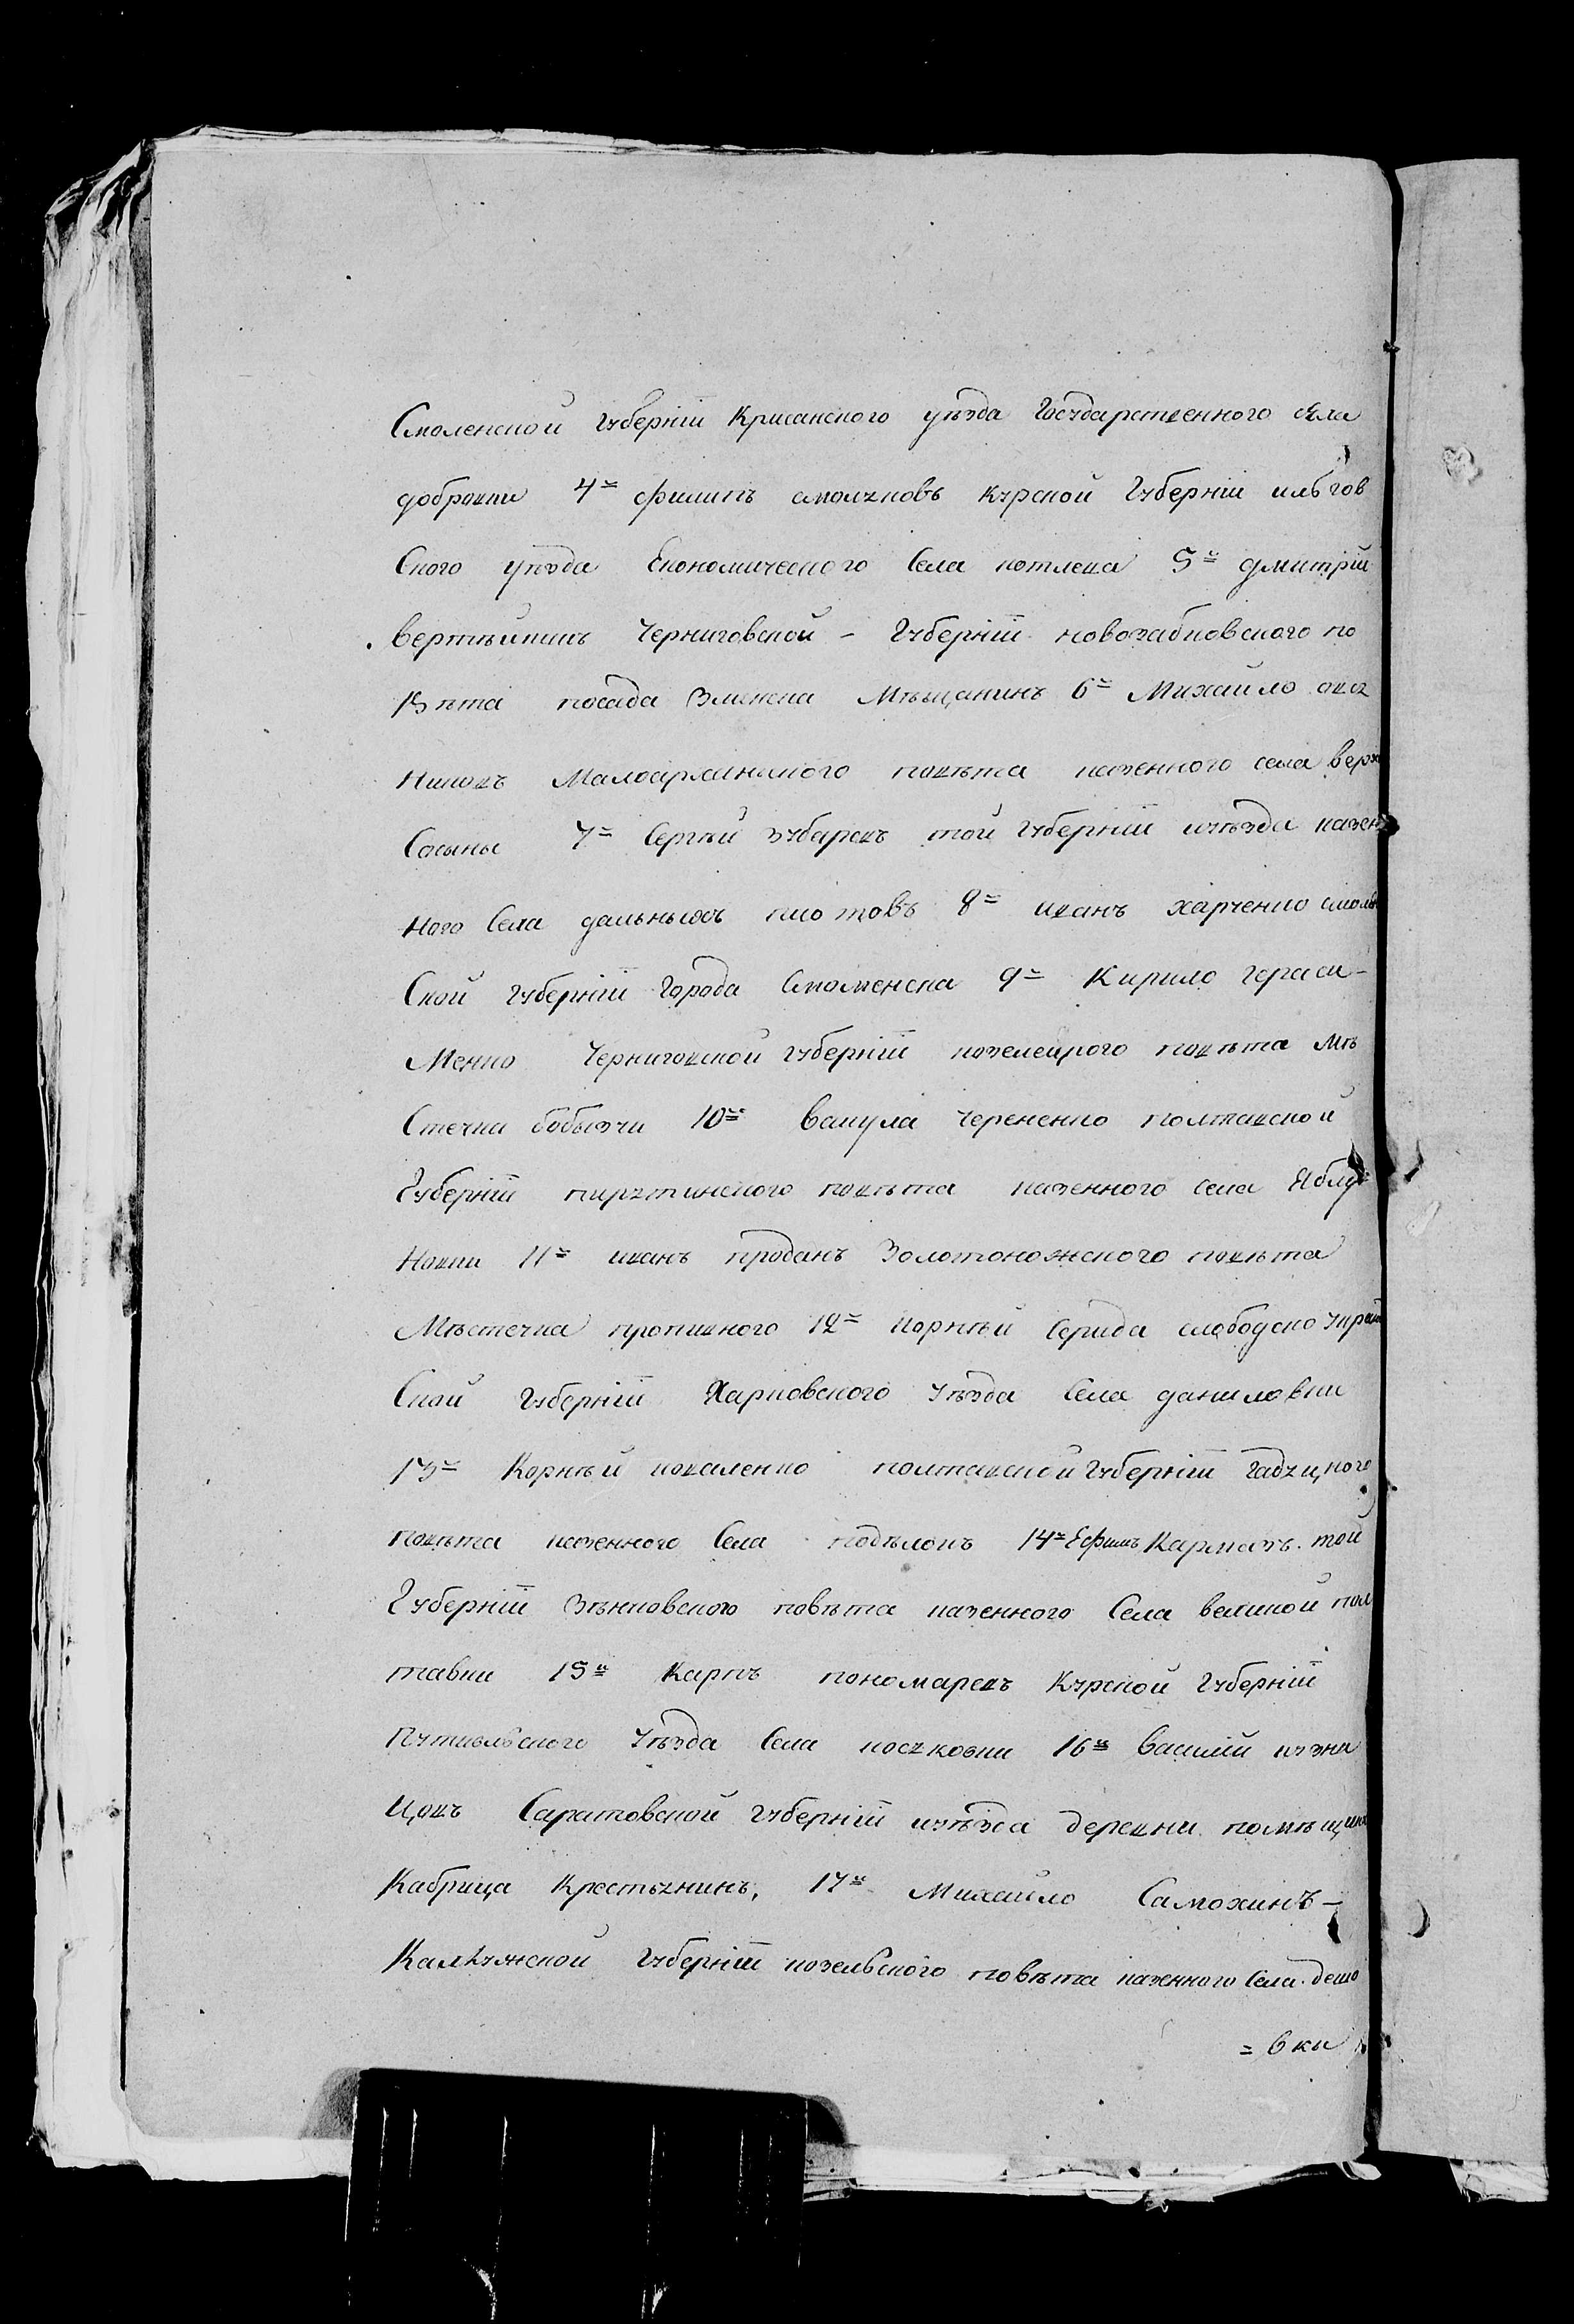 Смоленской Губерніи Крисанского уѣзда Государственного села
добровки 4й филипъ смоляковъ Курской Губерніи ильгов
Ского уѣзда Економического Села котлева 5й дмитрій
вертѣйкинъ Черниговской - Губерніи новозабковского по
вѣта посада Злинска Мѣщанинъ 6й Михайло
повѣта казенного села верх
Сосыны 7й Сергѣй зубаревъ той Губерніи иуѣзда казен
ного Села дальныхъ 8й иванъ харченко смолен
Ской Губерніи Города Смоленска 9й Кирило Гераси-
Менко Черниговской Губерніи козелецкого повѣта мѣ
Стечка Бобызчи 10й вакула Черененко полтавской
Губерніи пирятинского повѣта казенного села Яблу=
Новки 11й иванъ проданъ Золотоножского повѣта
Мѣстечка пропивного 12й Корнѣй Середа слободскоукраин
Ской Губерніи Харковского уѣзда Села даниловки
13й Корнѣй коваленко полтавской Губерніи Гадяцкого
повѣта казенного Села подѣлокъ 14й Ефимъ Кармазъ той
Губерніи Зѣнковского повѣта казенного Села великой пол
тавки 15й Карпъ пономаревъ Курской Губерніи
Путивльского уѣзда Села 16й василій кузне
цовъ Саратовской Губерніи иуѣзда деревни помѣщика
Кабрица Крестьянинъ, 17й Михайло Самохинъ -
Калужской Губерніи козельского повѣта казенного Села дешо
= вки